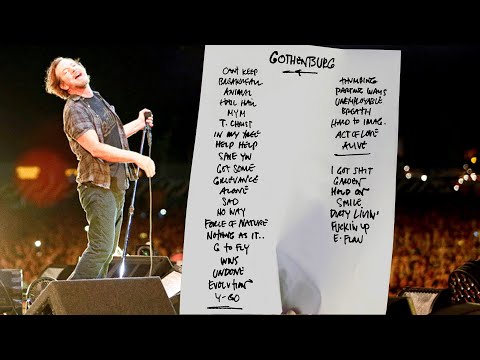 GOTHENBURG
CAN'T KEEP
BREAKERFALL
ANIMAL
HAIL HAIL
MFM
T. CHRIST
IN MY TREE
HELP HELP
SAVE YOU
GOT SOME
GRIEVANCE
ALONE
SAD
NO WAY
FORCE OF NATURE
NOTHING AS IT..
G TO FLY
WMA
UNDONE
EVOLUTION
Y-GO
THUMBING
PARTING WAYS
UNEMPLOYABLE
BREATH
HARD TO IMAG.
ACT OF LOVE
ALIVE
I GOT SHIT
GARDEN
HOLD ON
SMILE
DIRTY LIVIN'
FUCKIN UP
E. FLOW